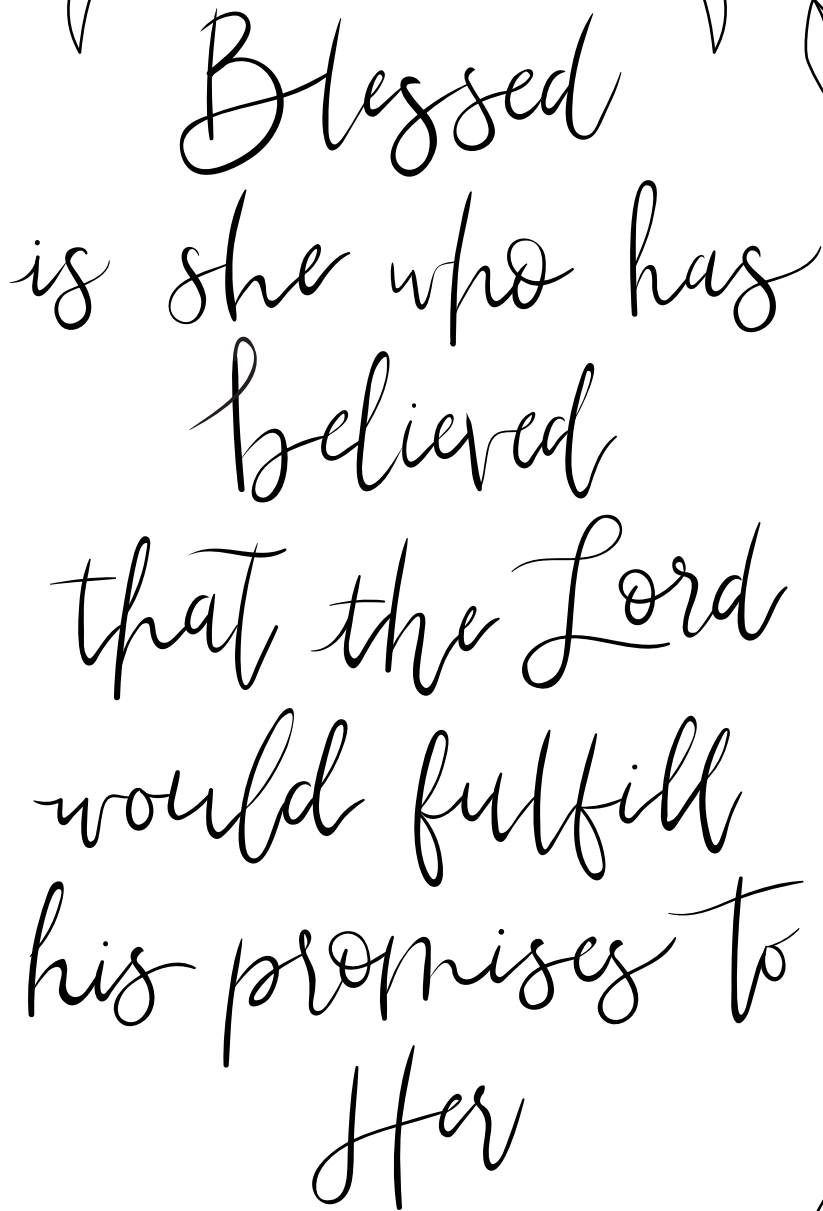 Blessed
is she who has
believed
that the Lord
would fulfill
his promises to
Her